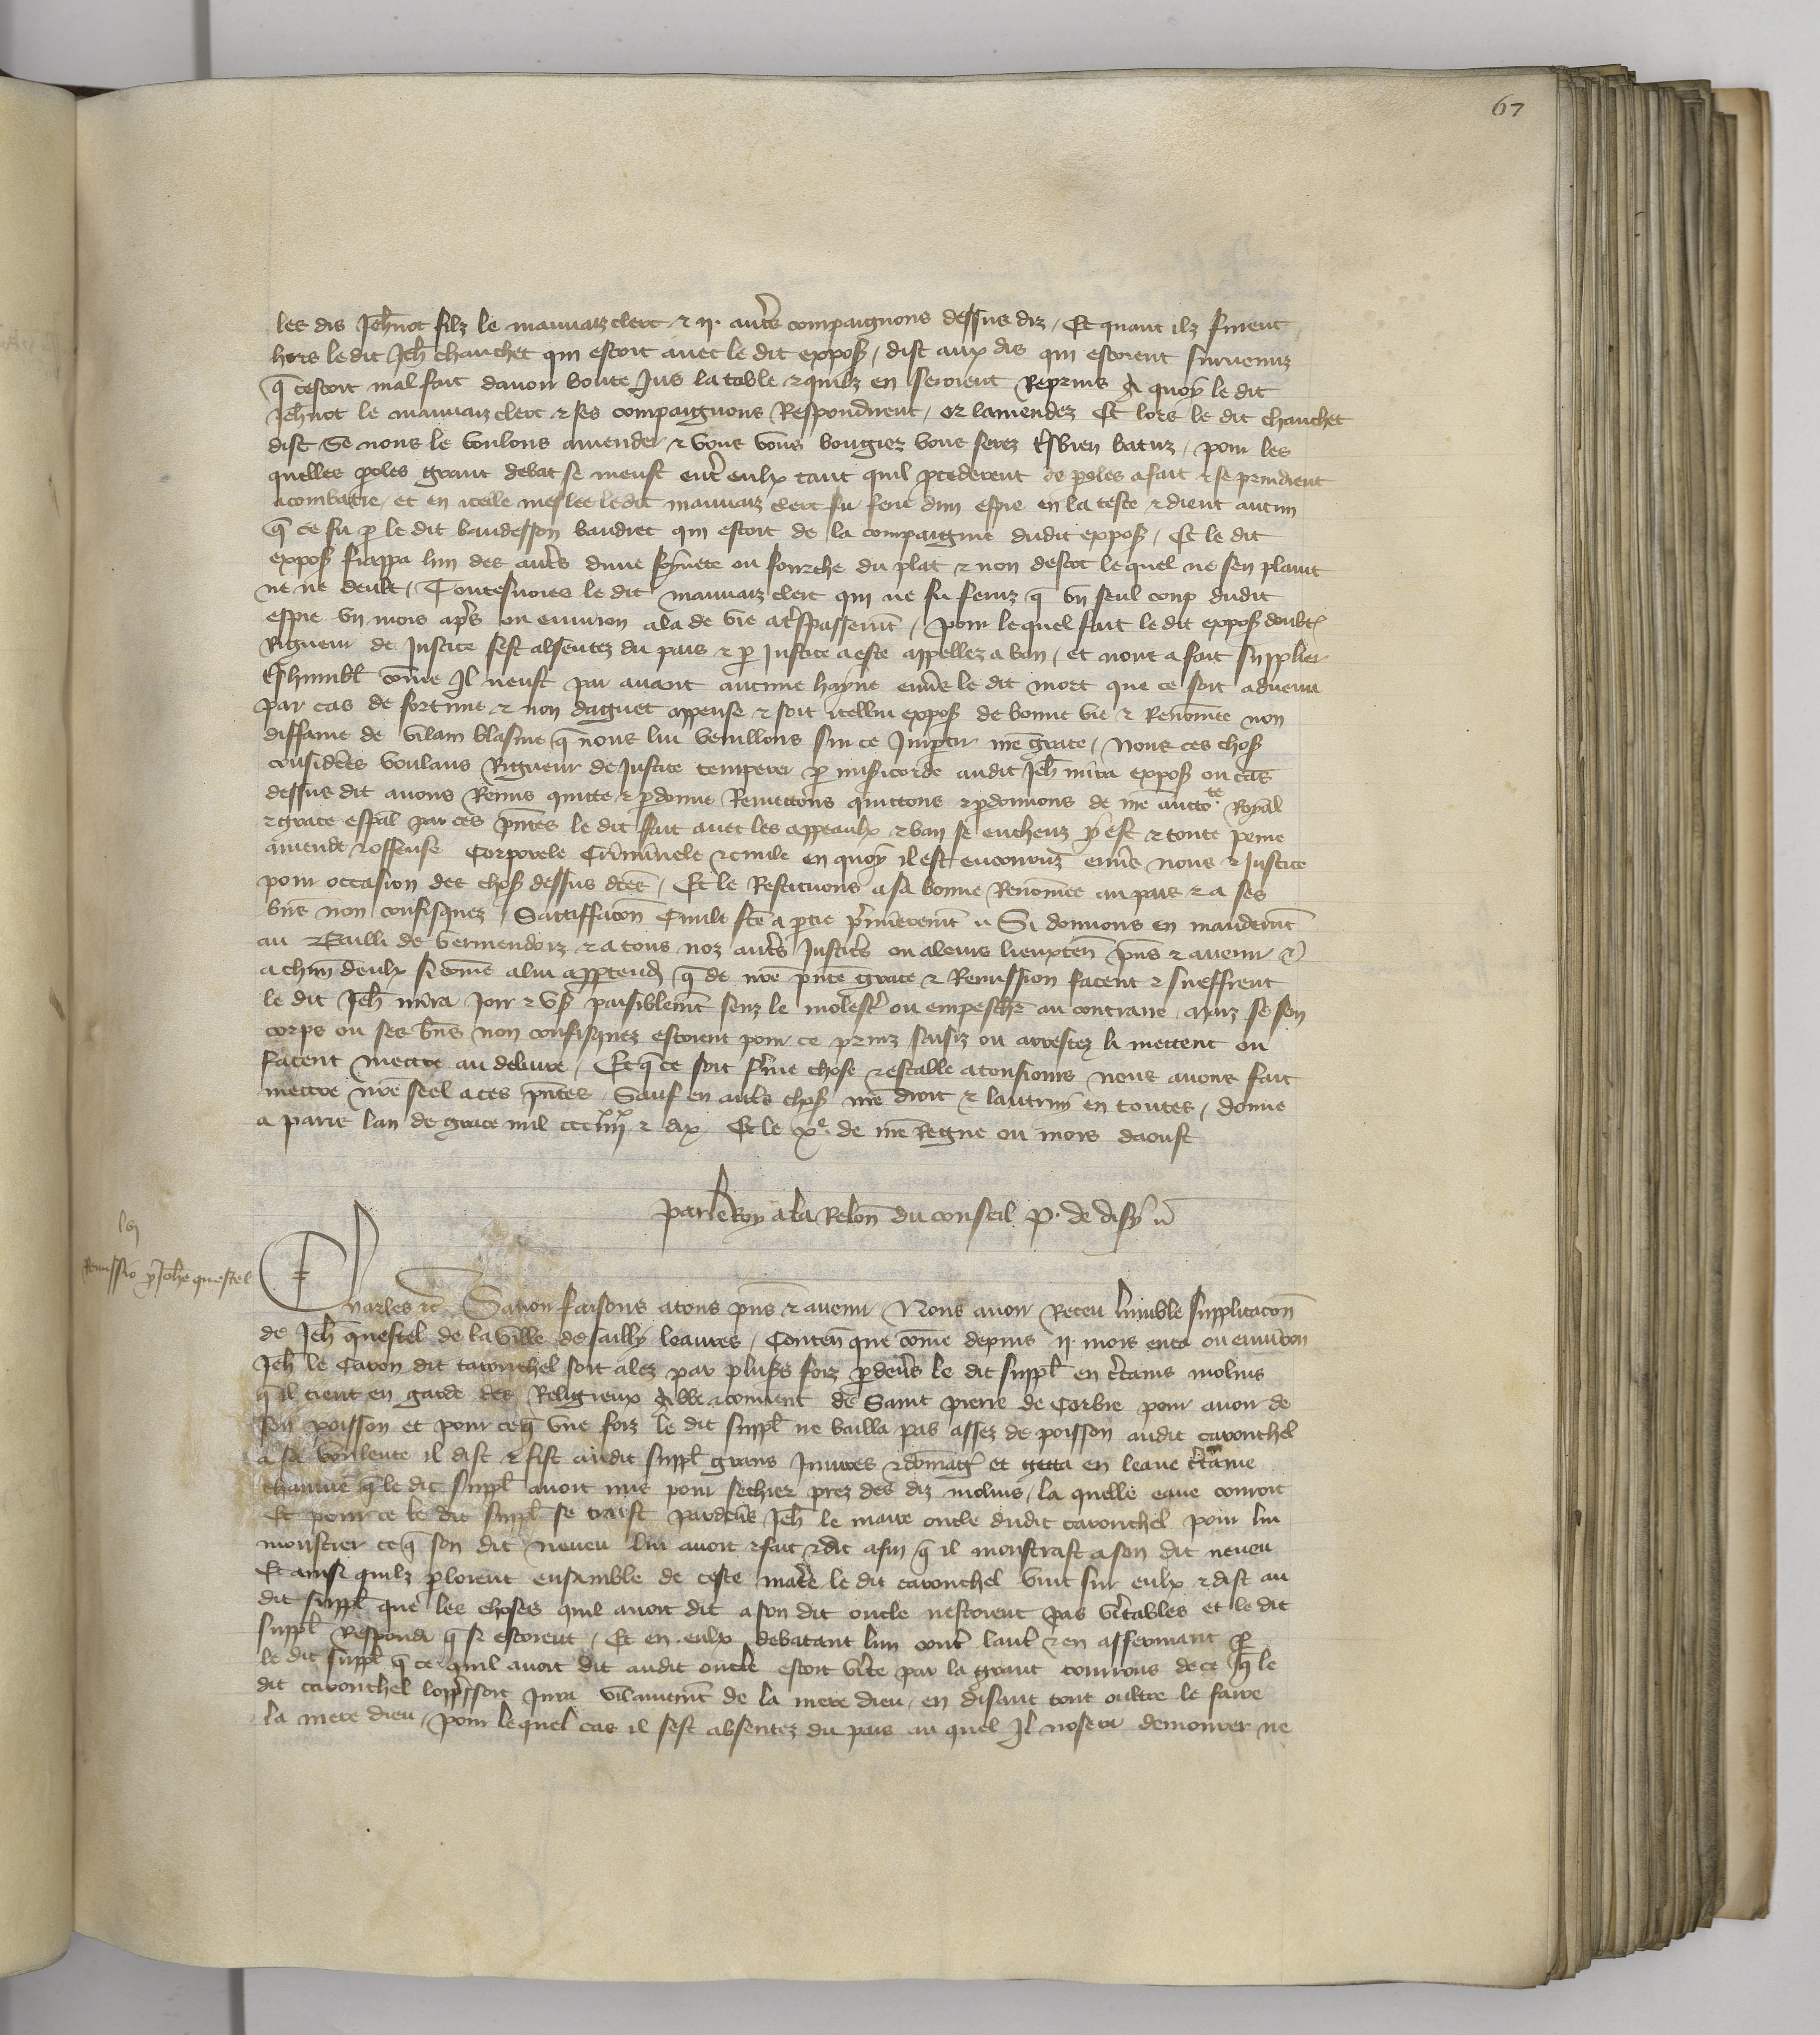 67
les dis Jeh̄not filz le mauuaiz clerc ⁊ ij. autēs compaignons dessus diz / Et quant ilz furent
hors ledit Jeh̄ chauchet qui estoit auec le dit exposs / dist aux dis qui estoient suruenuz
q̄ cestoit mal fait dauoir boute Jus la table ⁊ quilz en seroient Reprins A quoy le dit
Jeh̄not le mauuaiz clerc ⁊ ses compaignons Respondirent / or lamendez Et lors le dit chauchet
dist Se nous le voulons amender ⁊ vous vous bougiez vous serez tsbien batuz / pour les
quelles ꝑoles grant debat se meust entr̄ eulx tant quil ꝓcederent de ꝑoles a fait ⁊ se prindrent
a combatre / et en icelle meslee le dit mauuaiz clerc fu feru dun espie en la teste ⁊ dient aucun
q̄ ce fu ꝑ le dit baudesson baudret qui estoit de la compaignie dudit exposs / Et le dit
exposs frappa lun des autr̄s dune foynete ou fourche du plat ⁊ non destoc le quel ne sen plaint
ne ne deult / Toutesuoies le dit mauuaiz clerc qui ne fu feruz q̄ vn seul coup dudit
espie vn mois apr̄s ou enuiron ala de vie a tr̄spassemt̄ / pour lequel fait le dit exposs doubt̄
Rigueur de Justice sest absentez du pais ⁊ ꝑ Justice a este appellez a ban / et nous a fait supplier
tshumbl̄ cōme Il neust par auant aucune hayne enūs le dit mort que ce soit aduenu
par cas de fortune ⁊ non daguet appense ⁊ soit icellui exposs de bonne vie ⁊ Renōmee non
diffame de vilain blasme q̄ nous lui vueillons sur ce Impartir nr̄e grace / Nous ces chosˀ
considerēs voulans Rigueur de Justice temperer ꝑ misicorde audit Jeh̄ mura exposs ou cas
dessus dit auons Remis quitte ⁊ ꝑdonne Remettons quittons ⁊ ꝑdonnons de nr̄e auctote Royal
⁊ grace espāl par ces pn̄tes le dit fait auec les appeaulx ⁊ ban se encheuz y est ⁊ toute peine
amende ⁊ offense Corporele Criminele ⁊ ciuile en quoy il est encouruz enūs nous ⁊ Justice
pour occasion des chosˀ dessus dc̄es / Et le Restituons a sa bonne Renōmee au pais ⁊ a ses
bn̄s non confisquez / Satiffacōn Ciuile fc̄e a ꝑtie pr̄mieremt̄ ıı Si donnons en mandemt̄
au Bailli de vermendoiz ⁊ a tous noz autr̄s Justicr̄s ou a leurs lieuxten̄ pn̄s ⁊ auenir ⁊
a chūn deulx si cōme a lui apptend̄ q̄ de nr̄e pn̄te grace ⁊ Remission facent ⁊ sueffrent
le dit Jeh̄ mura Joir ⁊ vsˀ paisiblemt̄ senz le molestr̄ ou empeschr̄ au contraire / Maiz se son
corps ou ses bn̄s non confisquez estoient pour ce prinz saisiz ou arrestez li mettent ou
facent mettre au deliure / Et q̄ ce soit fr̄me chose ⁊ estable a tousiours nous auons fait
mettre nr̄e seel a ces pn̄tes / Sauf en autr̄s chosˀ nr̄e droit ⁊ lautruy en toutes / donne
a paris lan de grace mil ccciiijxx ⁊ dix Et le xe de nr̄e Regne ou mois daoust
par le Roy a la Relōn du conseil P. de disy ıı
Remissio ꝓ Joh̄e questel
Charles ⁊c̄ Sauoir faisons a tous pn̄s ⁊ auenir Nous auoir Receu lumble supplicacōn
de Jeh̄ questel de la ville de sailly leaures / Conten̄ que cōme depuis ij. mois enca ou enuiron
Jeh̄ le Caron dit caronchel soit alez par plussˀ foiz ꝑdeūs le dit suppl̄ en cr̄tains molins
q̄ il tient en garde des Religieux Abbe ⁊ couuent de Saint pierre de Corbie pour auoir de
son poisson et pour ce q̄ vne foiz le dit suppl̄ ne bailla pas assez de poisson audit caronchel
a sa voulente il dist ⁊ fist audit suppl̄ grans Iniures ⁊ dōmagˀ et getta en leaue cr̄taine
chanure q̄ le dit suppl̄ auoit mis pour sechier prez des diz molins / la quelle eaue couroit
Et pour ce le dit suppl̄ se traist pardeūs Jeh̄ le maire oncle dudit caronchel pour lui
monstrer ce q̄ son dit neueu lui auoit ⁊ fait ⁊ dit afin q̄ il monstrast a son dit neueu
Et ainsi quilz ꝑloient ensamble de ceste matr̄e le dit caronchel vint sur eulx ⁊ dist au
dit suppl̄ que les choses quil auoit dit a son dit oncle nestoient pas vr̄itables et le dit
suppl̄ Respondi q̄ si estoient / Et en eulx debatant lun contr̄ lautr̄ ⁊ en affermant ꝑ
le dit suppl̄ q̄ ce quil auoit dit audit oncle estoit vr̄ite par la grant courrous de ce q̄ le
dit caronchel loppressoit Jura vilainemt̄ de la mere dieu / en disant tout oultre le faire
la mere dieu / pour lequel cas il sest absentez du pais au quel Il noseroit demourer ne